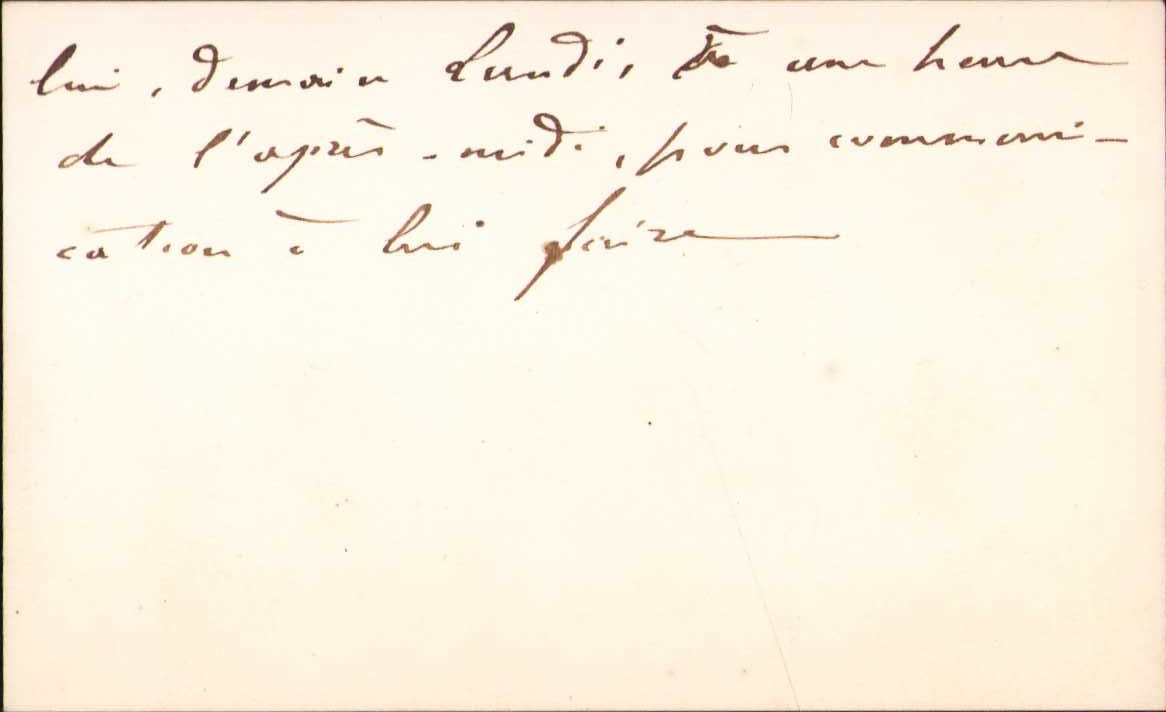 lui, demain Lundi, à une heure
de l'après-midi, pour communi-
cation à lui faire